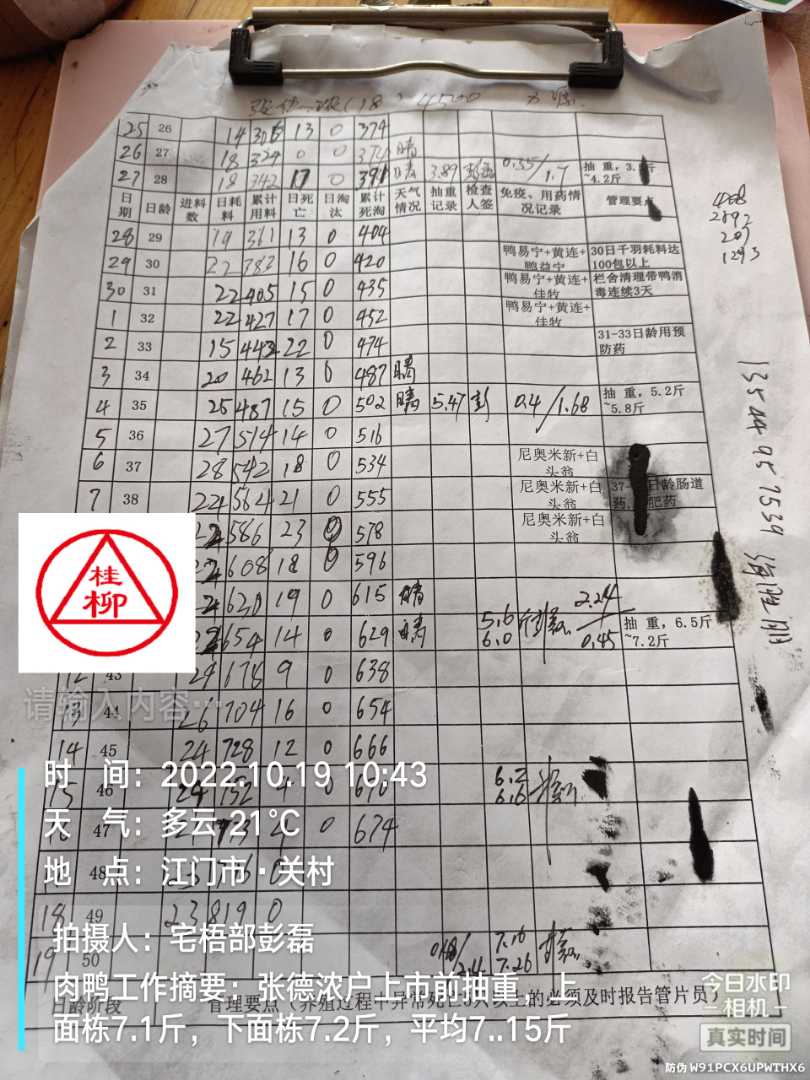 25 26 14 305 13 0 374
26 27 18 324 0 0 374 晴
27 28 18 342 17 0 391 晴 3.89 0.55/1.7 抽重，3. 斤~4.2斤
日期 日龄 进料数 日耗料 累计用料 日死亡 日淘汰 累计死淘 天气情况 抽重记录 检查人签 免疫、用药情况记录 管理要点
28 29 19 361 13 0 404
29 30 22 383 16 0 420 鸭易宁+黄连+鸭益宁 30日千羽耗料达100包以上
30 31 22 405 15 0 435 鸭易宁+黄连+佳牧 栏舍清理带鸭消毒连续3天
1 32 22 427 17 0 452 鸭易宁+黄连+佳牧
2 33 15 442 22 0 474 31-33日龄用预防药
3 34 20 462 13 0 487 晴
4 35 25 487 15 0 502 晴 5.47 彭 0.4/1.68 抽重，5.2斤~5.8斤
5 36 27 514 14 0 516
6 37 28 542 18 0 534 尼奥米新+白头翁
7 38 22 564 21 0 555 尼奥米新+白头翁 37- 日龄肠道药， 肥药
22 586 23 0 578 尼奥米新+白头翁
22 608 18 0 596
22 630 19 0 615 晴
654 14 0 629 晴 5.6 6.0 2.24/0.45 抽重，6.5斤~7.2斤
12 43 24 678 9 0 638
13 44 26 704 16 0 654
14 45 24 728 12 0 666
15 46 24 752 4 0 670 6.2 6.6
47 0 674
48
18 49 23 819 0
19 50 7.16 7.26
日龄阶段 管理要点（养殖过程中异常死亡5人以上的必须及时报告管片员）
桂柳
请输入内容…
时 间：2022.10.19 10:43
天 气：多云 21℃
地 点：江门市·关村
拍摄人：宅梧部彭磊
肉鸭工作摘要：张德浓户上市前抽重，上
面栋7.1斤，下面栋7.2斤，平均7..15斤
今日水印
相机
真实时间
防伪 W91PCX6UPWTHX6